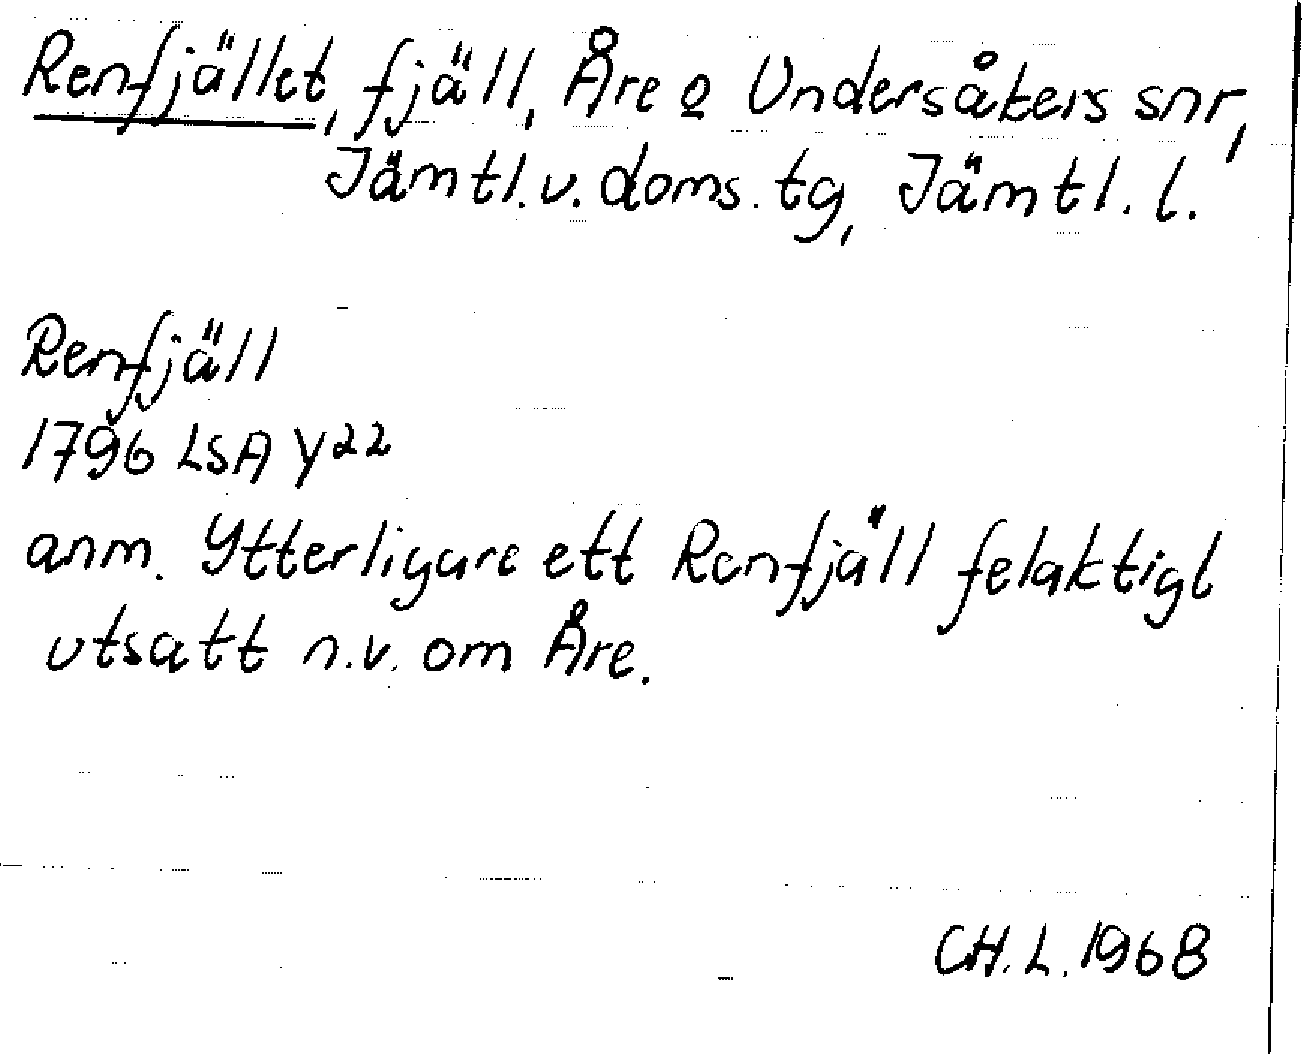 Renfjället, fjäll, Åre o Undersåkers snr,
Jämtl.v.doms.tg, Jämtl.l.
Renfjäll
1796 LSA Y22
anm. Ytterligare ett Renfjäll felaktigt
utsatt n.v. om Åre.
CH.L.1968